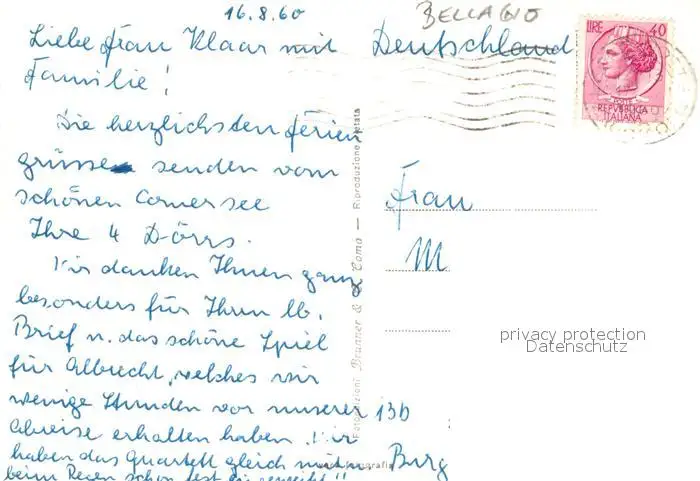 16.8.60
BELLAGIO
Liebe Frau Klaar mit
Familie!
Die herzlichsten Ferien
grüsse senden vom
schönen Comersee
Ihre 4 Dörrs.
Wir danken Ihnen ganz
besonders für Ihren lb.
Brief u. das schöne Spiel
für Albrecht, welches wir
wenige Stunden vor unserer
Abreise erhalten haben. Wir
haben das Quartett gleich
beim Regen schon fest
Deutschland
LIRE 40
POSTE
REPVBBLICA
ITALIANA
Frau
M
13b
Burg
Fotoedizioni Brunner & C. Como — Riproduzione vietata
privacy protection
Datenschutz